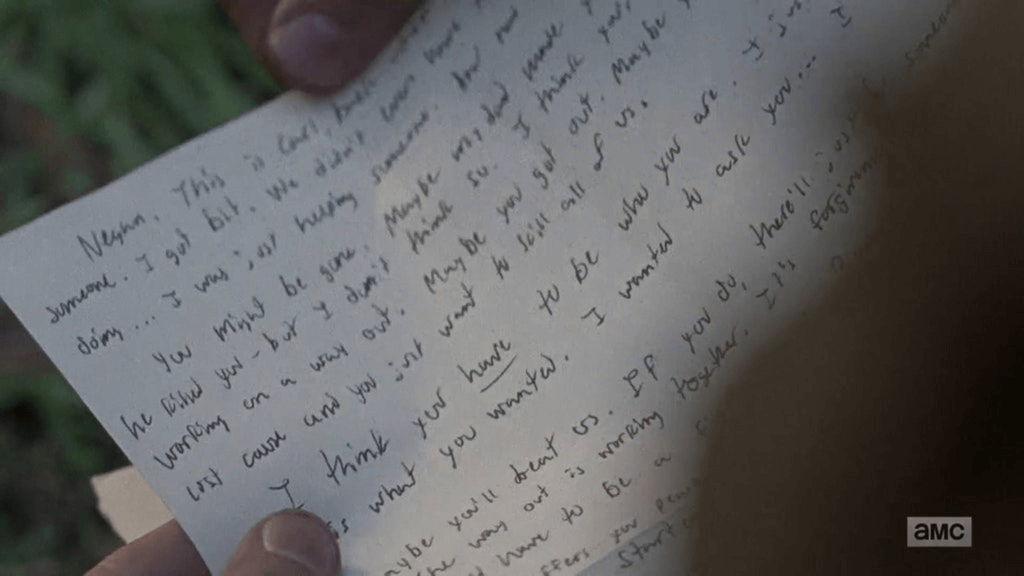 Negan, This is Carl.
someone. I got bit. We didn't even know
doing... I was just helping someone. Now
You might be gone. Maybe my dad made
he killed you - but I don't think so. I think
working on a way out. Maybe you got out. Maybe
lost cause and you just want to kill all of us.
I think you have to be who you are. I just
what you wanted. I wanted to ask you... I
you'll beat us. If you do, there'll just
way out is working together. It's
have to be a
you
start
amc